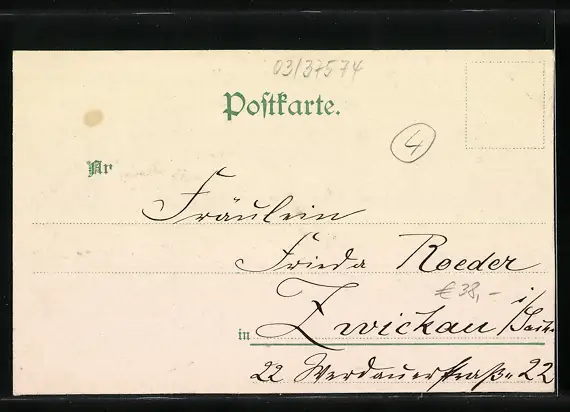 03/37574
Postkarte.
4
An
Fräulein
Frieda Roeder
€ 38,-
in Zwickau i/Sach.
22 Werdauerstraße 22